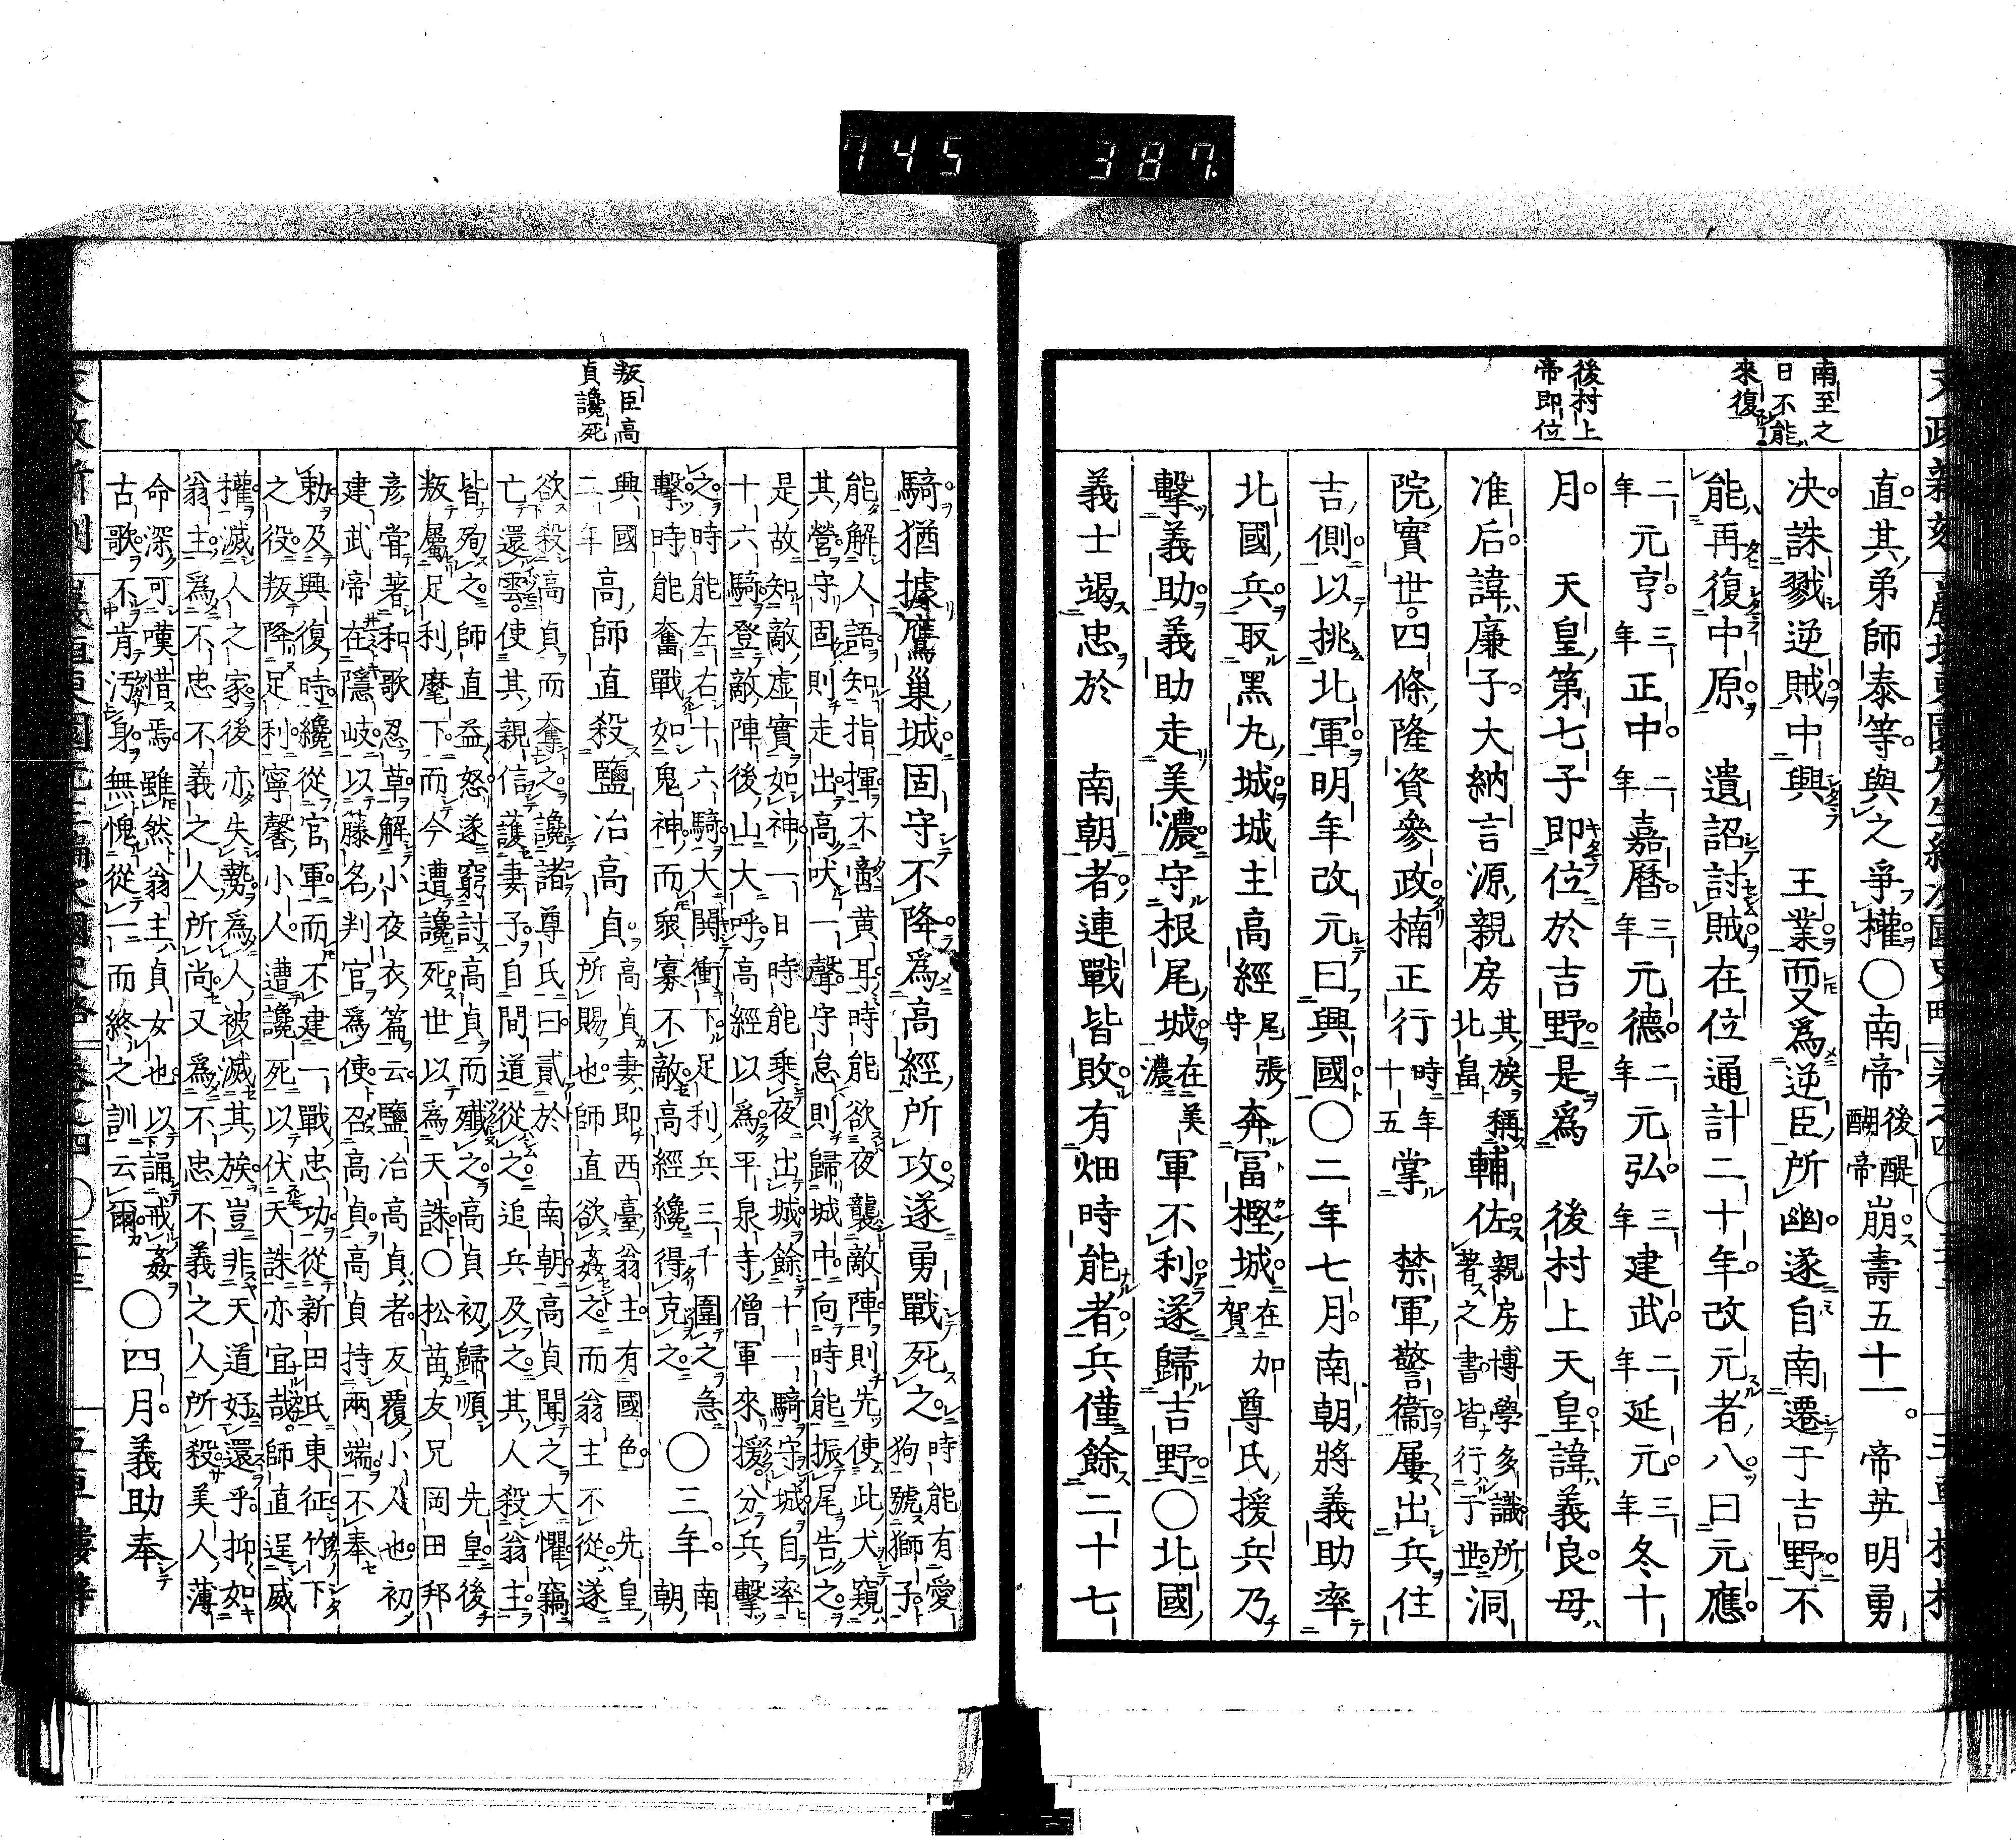 745 387.
南至之
日不能
來復
後村上
帝即位
直其弟師泰等與之爭權○南帝後醍醐帝崩壽五十一。帝英明勇
決誅戮逆賊中興 王業而又爲逆臣所幽遂自南遷于吉野不
能再復中原 遺詔討賊在位通計二十年改元者八曰元應
二年元亨三年正中二年嘉曆三年元德二年元弘三年建武二年延元三年冬十
月 天皇第七子即位於吉野是爲 後村上天皇諱義良母
准后諱廉子大納言源親房其族稱北畠輔佐親房博學多識所著之書皆行于世洞
院實世四條隆資參政楠正行時年十五掌 禁軍警衞屢出兵住
吉側以挑北軍明年改元曰興國○二年七月南朝將義助率
北國兵取黑丸城城主高經尾張守奔冨樫城在加賀尊氏援兵乃
擊義助義助走美濃守根尾城在美濃軍不利遂歸吉野○北國
義士竭忠於 南朝者連戰皆敗有畑時能者兵僅餘二十七
叛臣高
貞讒死
騎猶據鷹巢城固守不降爲高經所攻遂勇戰死之時能有愛狗號獅子
能解人語知指揮不啻黄耳時能欲夜襲敵陣則先使此犬窺
其營守固則走出高吠一聲守怠則歸城中向時能振尾告之
是故知敵虛實如神一日時能乗夜出城餘十一騎守城自率
十六騎登敵陣後山大呼高經以爲平泉寺僧軍來援分兵擊
之時能左右十六騎大鬨衝下足利兵三千圍之急
擊時能奮戰如鬼神而衆寡不敵高經纔得克之○三年南朝
興國二年高師直殺鹽冶高貞高貞妻即西臺翁主有國色 先皇
所賜也師直欲姦之而翁主不從遂
欲殺高貞而奪之讒諸尊氏曰貳於 南朝高貞聞之大懼竊
亡還雲使其親信護妻子自間道從之追兵及之其人殺翁主
皆殉之師直益怒遂窮討高貞而殲之高貞初歸順 先皇後
叛屬足利麾下而今遭讒死世以爲天誅○松苗友兄岡田邦
彦嘗著和歌忍草解小夜衣篇云鹽冶高貞者反覆小人也初
建武帝在隱岐以藤名判官爲使召高貞高貞持兩端不奉
勅及興復時纔從官軍而不建一戰忠功從新田氏東征竹下
之役叛降足利寧馨小人遭讒死以伏天誅亦宜哉師直逞威
權滅人之家後亦失勢爲人被滅其族豈非天道好還乎抑如
翁主爲不忠不義之人所尚又爲不忠不義之人所殺美人薄
命深可嘆惜焉雖然翁主貞女也以誦戒姦
古歌不肯汚身無愧從一而終之訓云爾○四月義助奉